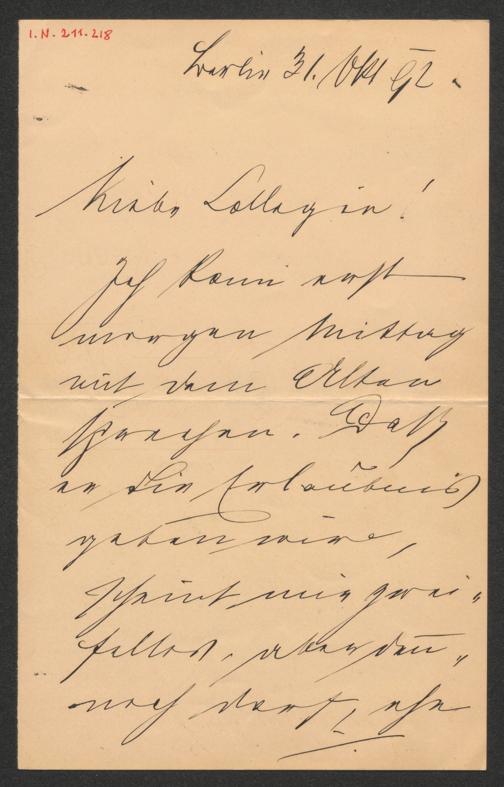 I.N. 211.218
Berlin 31. Okt 92.
Liebe Collegin!
Ich kann erst
morgen Mittag
mit dem Alten
sprechen. Daß
er die Erlaubnis
geben wird,
scheint mir zwei-
fellos, aber den-
noch darf, ehe